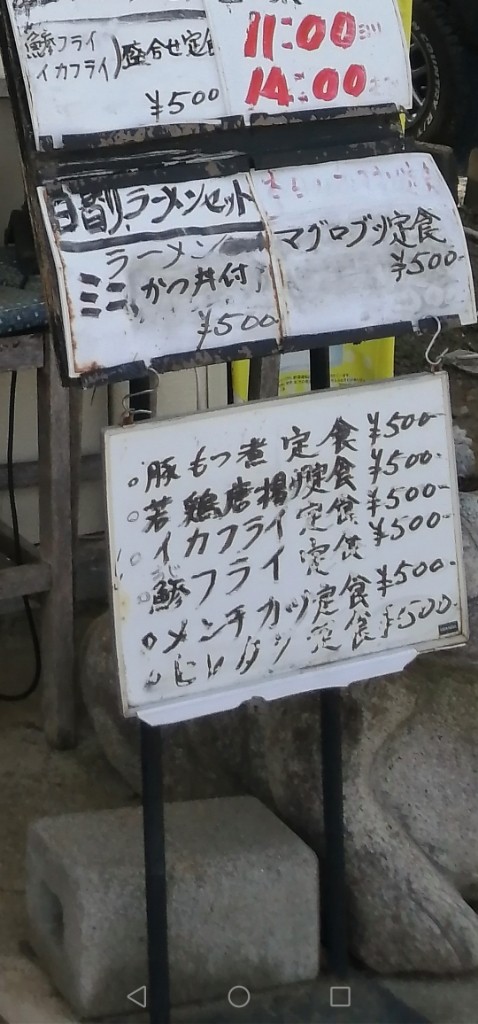 鯵フライ
イカフライ)盛合せ定食
¥500
11:00より
14:00
日替り ラーメンセット
ラーメン
ミニかつ丼付
¥500
マグロブツ定食
¥500-
○豚もつ煮定食 ¥500-
○若鶏唐揚げ定食 ¥500-
○イカフライ定食 ¥500-
鯵フライ定食 ¥500-
○メンチカツ定食 ¥500-
定食 ¥500-